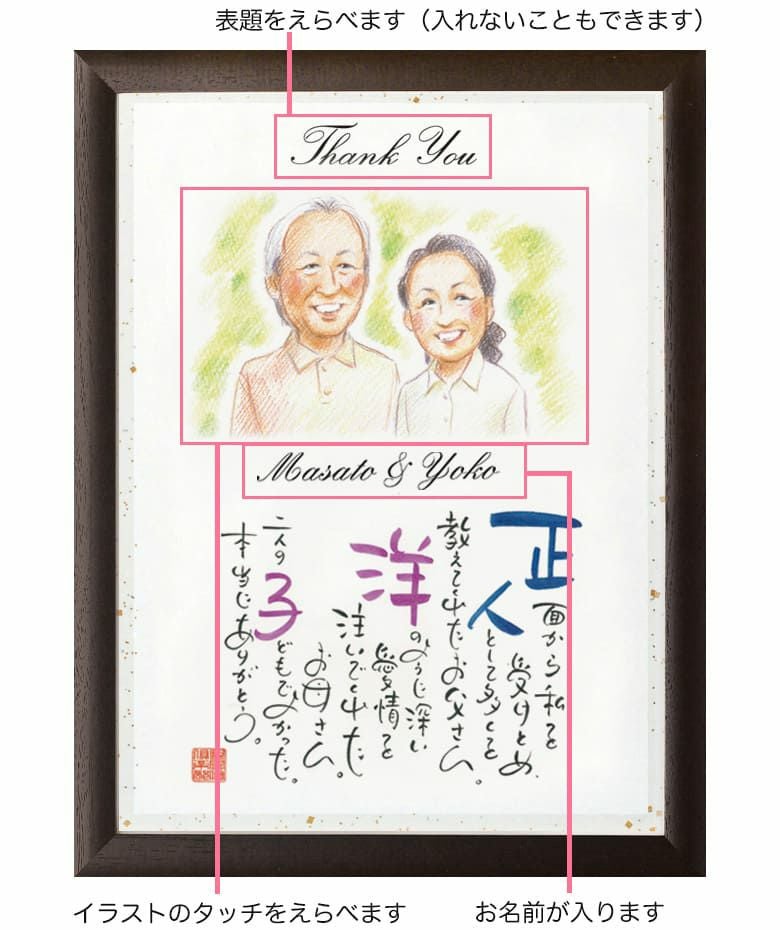 表題をえらべます（入れないこともできます）
Thank You
Masato & Yoko
正面から私を
受けとめ、
人として多くを
教えてくれたお父さん。
洋のように深い
愛情を
注いでくれた
お母さん。
二人の子どもでよかった。
本当にありがとう。
イラストのタッチをえらべます
お名前が入ります